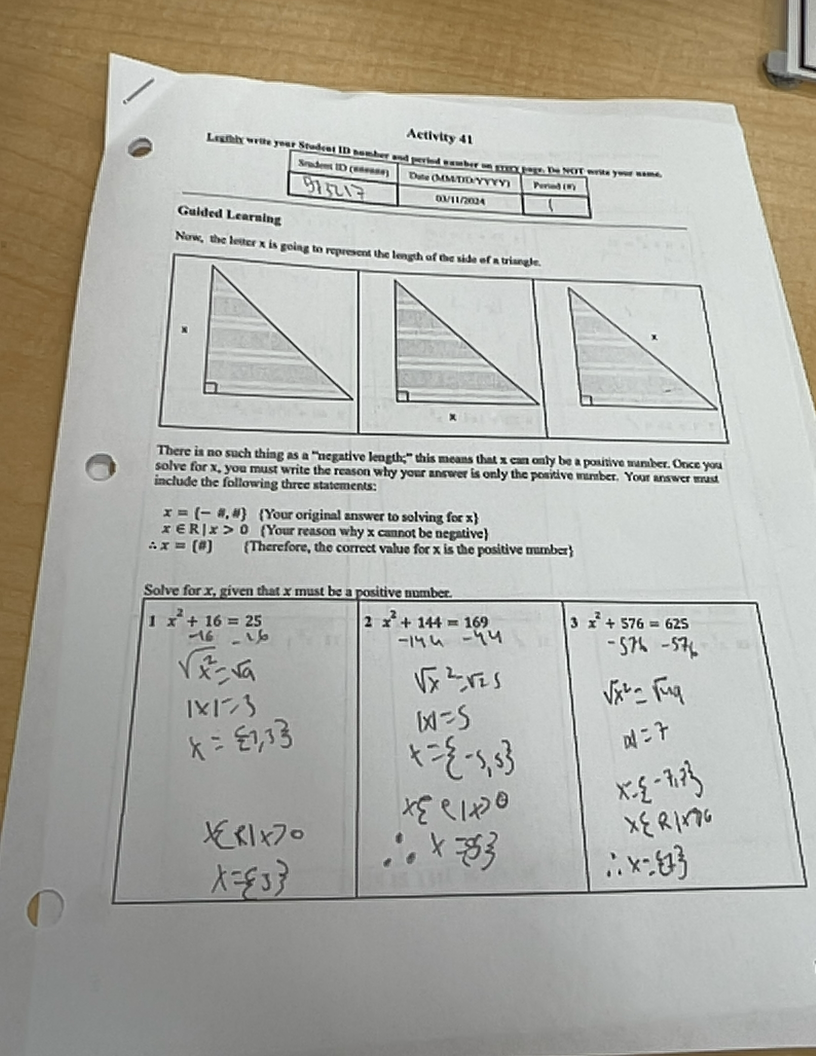 Activity 41
Legibly write your Student ID number and period number on every page. Do NOT write your name.
Student ID (######) Date (MM/DD/YYYY) Period (#)
03/11/2024 1
Guided Learning
Now, the letter x is going to represent the length of the side of a triangle.
x
x
x
There is no such thing as a "negative length;" this means that x can only be a positive number. Once you
solve for x, you must write the reason why your answer is only the positive number. Your answer must
include the following three statements:
x = {− #, #} {Your original answer to solving for x}
x ∈ R | x > 0 {Your reason why x cannot be negative}
∴ x = {#} {Therefore, the correct value for x is the positive number}
Solve for x, given that x must be a positive number.
1 x² + 16 = 25
-16 -16
√x² = √9
|x| = 3
x = {3,3}
x{R|x>0
x={3}
2 x² + 144 = 169
-144 -44
√x² = √25
|x| = 5
x={-5,5}
x{R|x>0
∴ x={5}
3 x² + 576 = 625
-576 -576
√x² = √49
|x| = 7
x={-7,7}
x{R|x>0
∴ x={7}